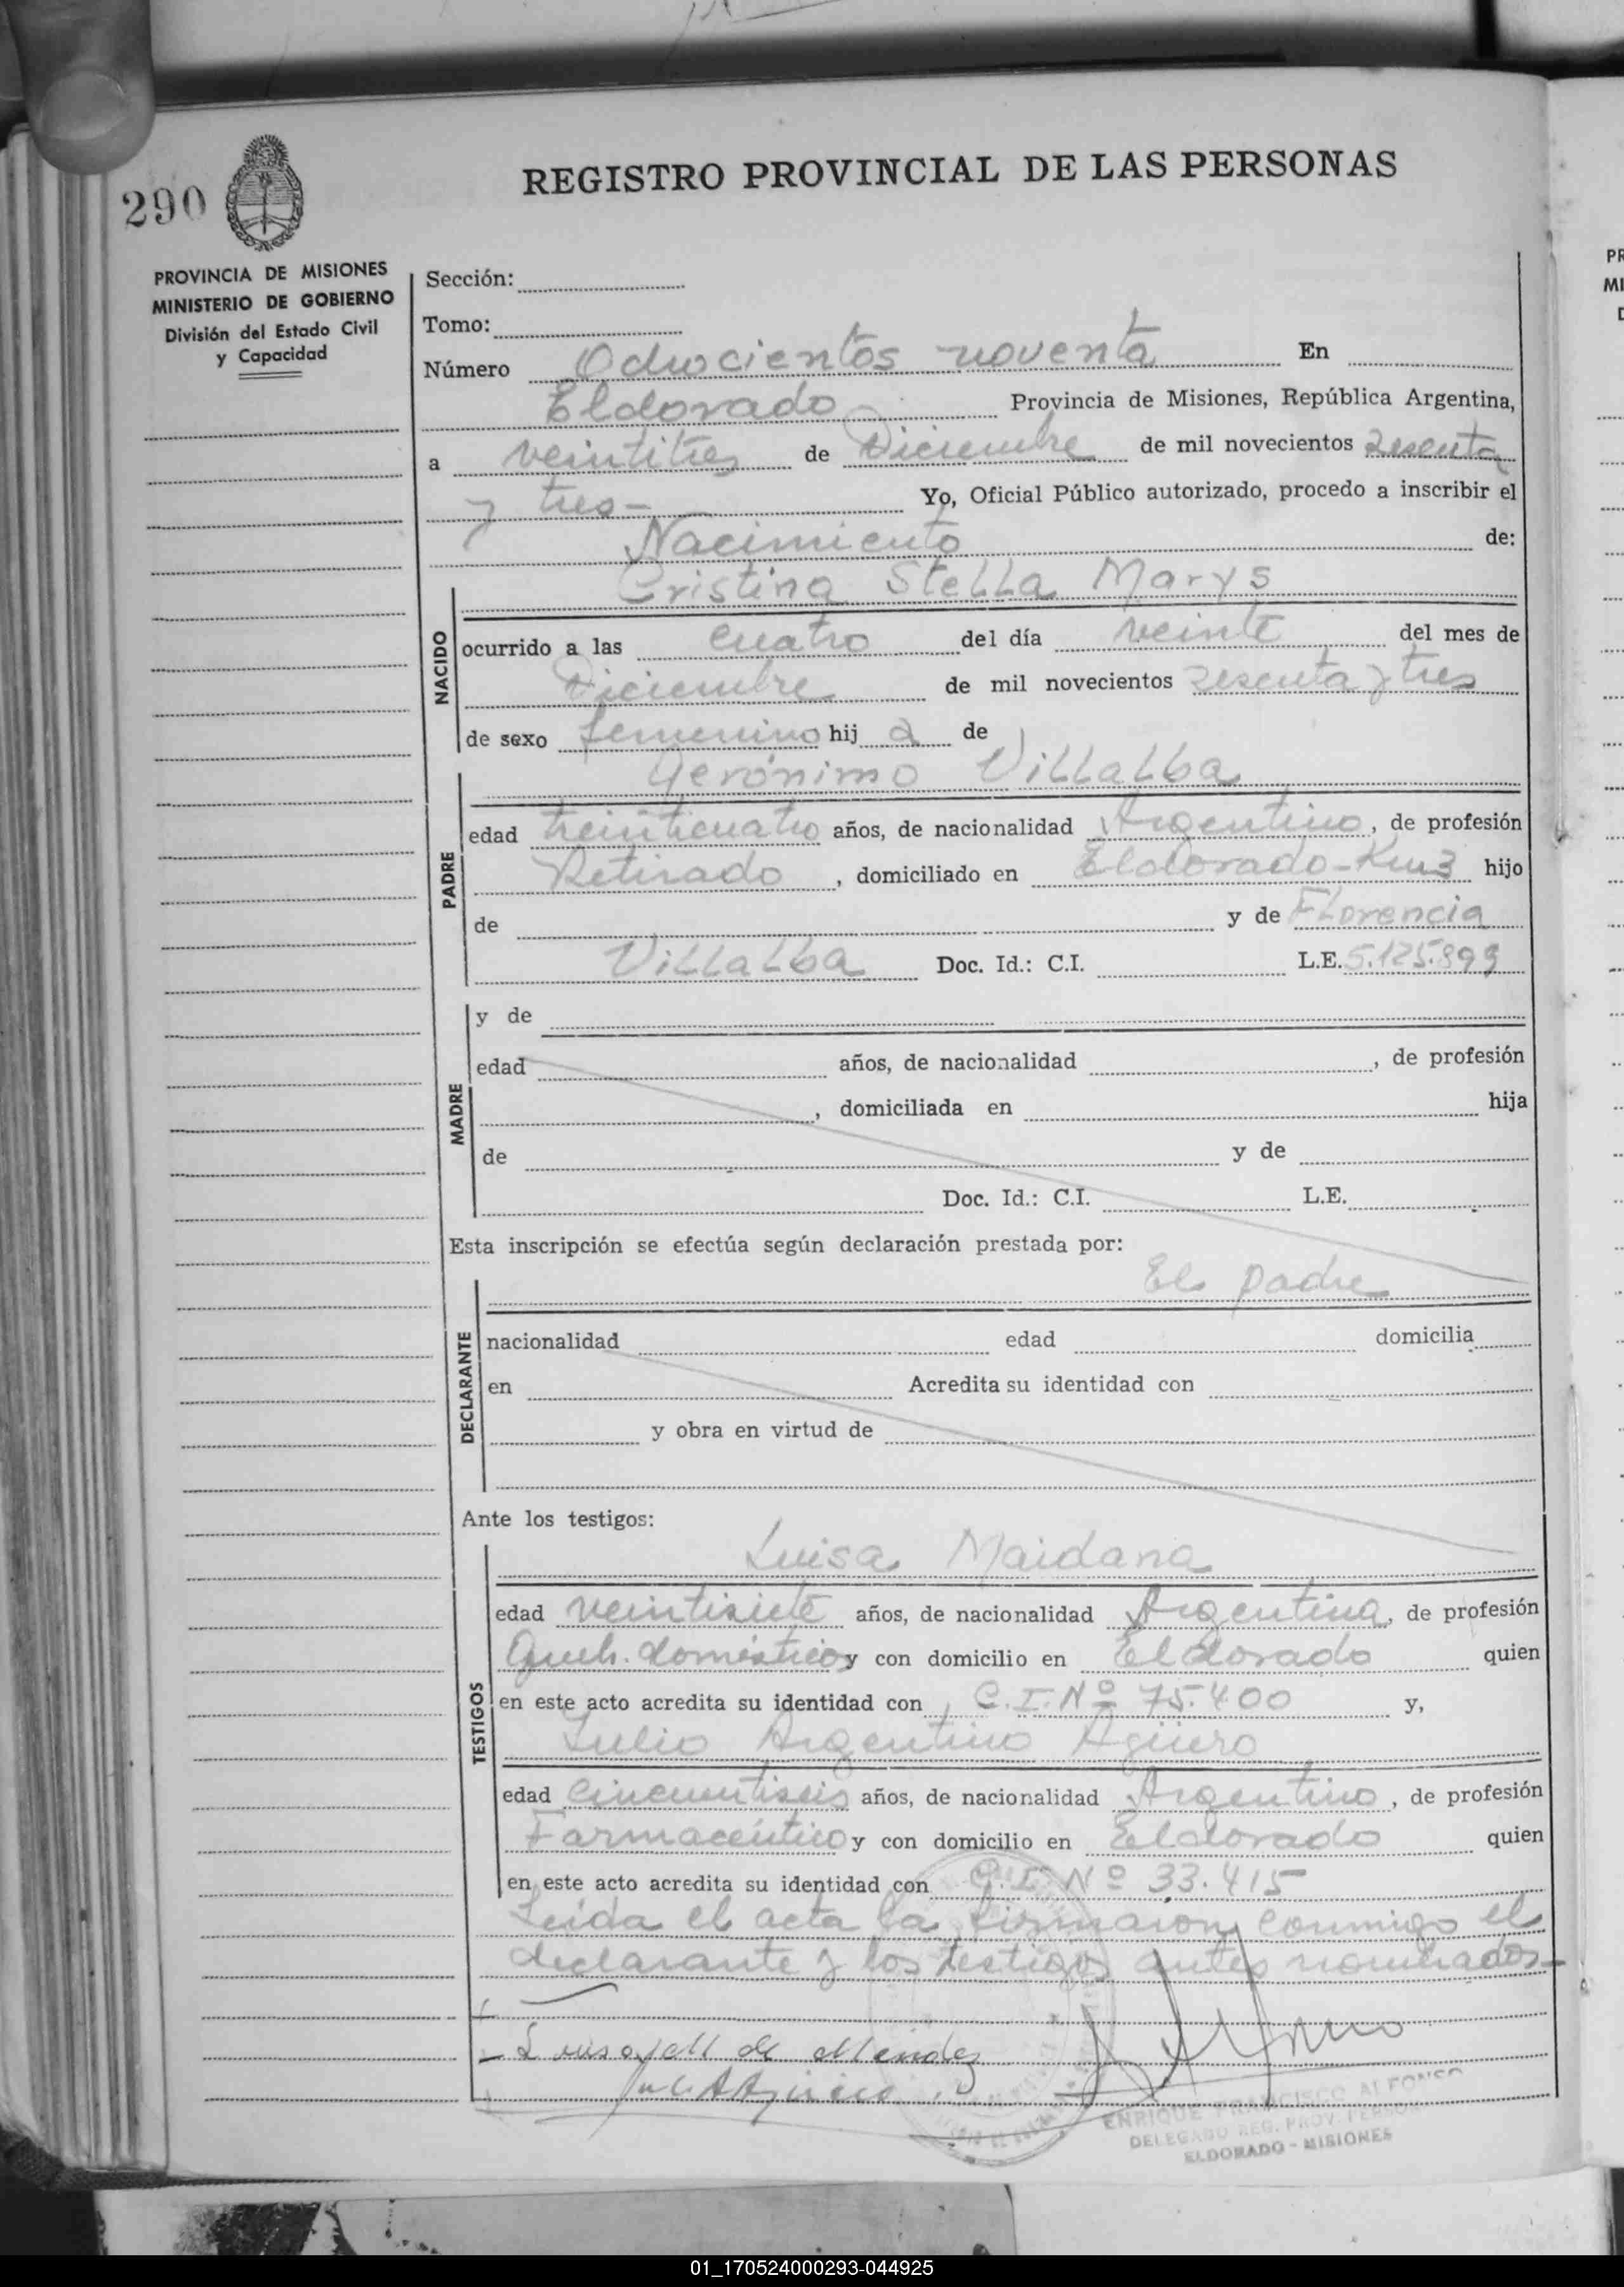 290
REGISTRO PROVINCIAL DE LAS PERSONAS
PROVINCIA DE MISIONES
MINISTERIO DE GOBIERNO
División del Estado Civil
y Capacidad
Sección:
Tomo:
Número Ochocientos noventa En
Eldorado Provincia de Misiones, República Argentina,
a veintitres de Diciembre de mil novecientos sesenta
y tres- Yo, Oficial Público autorizado, procedo a inscribir el
Nacimiento de:
NACIDO
Cristina Stella Marys
ocurrido a las cuatro del día veinte del mes de
Diciembre de mil novecientos sesenta y tres
de sexo femenino hij a de
PADRE
Gerónimo Villalba
edad treinticuatro años, de nacionalidad Argentino, de profesión
Retirado, domiciliado en Eldorado-Km3 hijo
de y de Florencia
Villalba Doc. Id.: C.I. L.E. 5.125.899
MADRE
y de
edad años, de nacionalidad , de profesión
, domiciliada en hija
de y de
Doc. Id.: C.I. L.E.
Esta inscripción se efectúa según declaración prestada por:
El padre
DECLARANTE
nacionalidad edad domicilia
en Acredita su identidad con
y obra en virtud de
Ante los testigos:
TESTIGOS
Luisa Maidana
edad veintisiete años, de nacionalidad Argentina, de profesión
Queh. domésticoy con domicilio en Eldorado quien
en este acto acredita su identidad con C.I. Nº 75.400 y,
Julio Argentino Agüero
edad cincuentiseis años, de nacionalidad Argentino, de profesión
Farmacéutico y con domicilio en Eldorado quien
en este acto acredita su identidad con C.I. Nº 33.415
Leida el acta la firmaron conmigo el
declarante y los testigos antes nombrados-
ENRIQUE FRANCISCO ALFONSO
DELEGADO REG. PROV. PERSON
ELDORADO - MISIONES
01_170524000293-044925